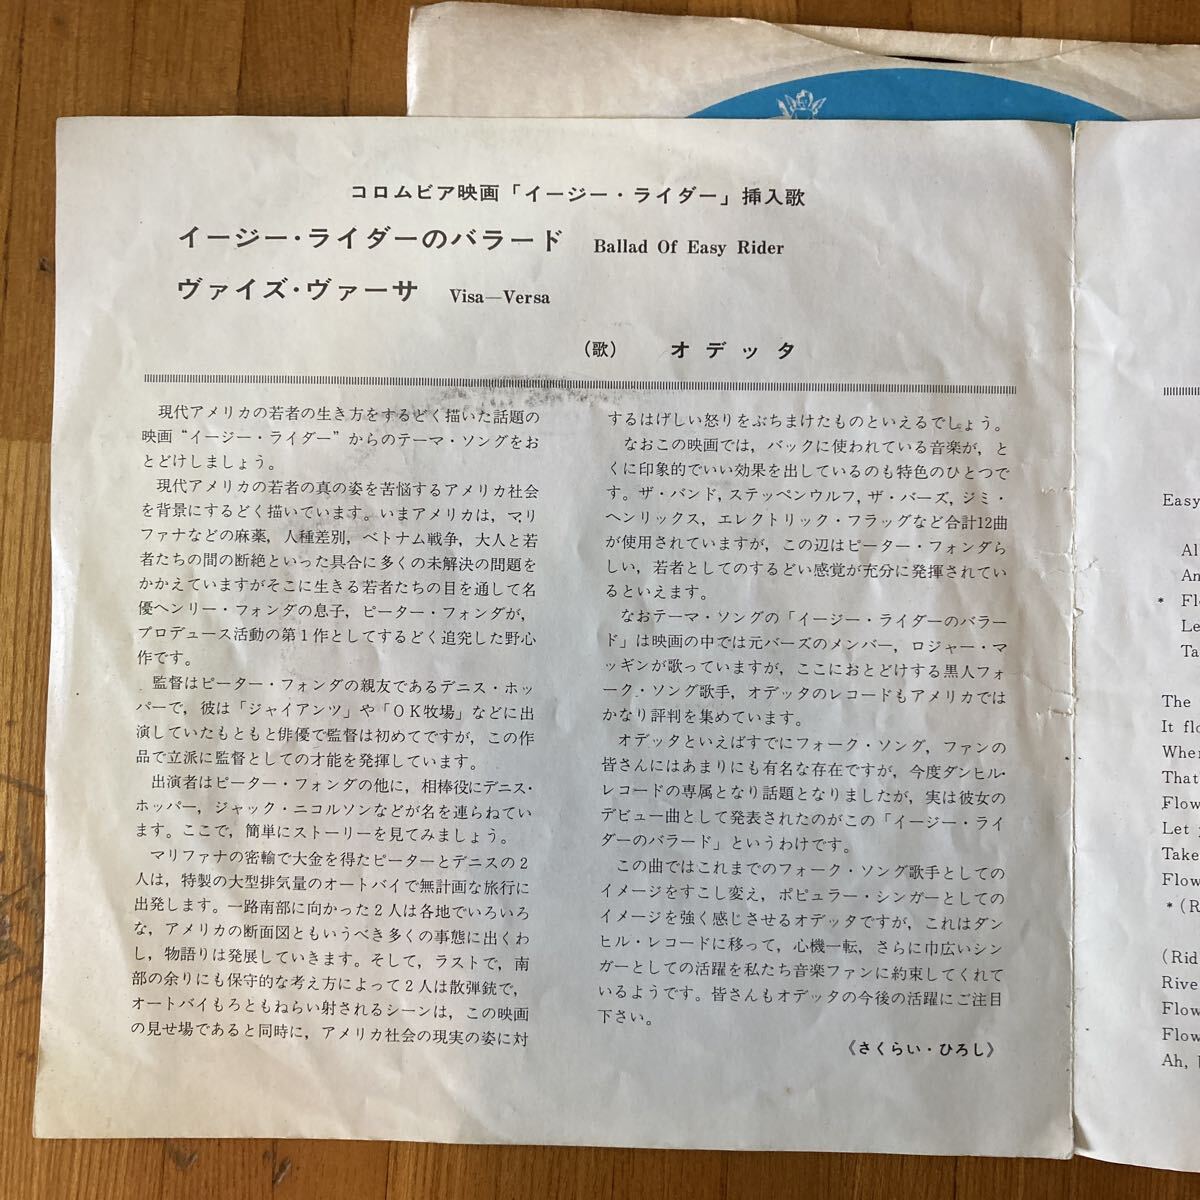 コロムビア映画「イージー・ライダー」挿入歌
イージー・ライダーのバラード Ballad Of Easy Rider
ヴァイズ・ヴァーサ Visa—Versa
(歌) オデッタ
現代アメリカの若者の生き方をするどく描いた話題の
映画“イージー・ライダー”からのテーマ・ソングをお
とどけしましょう。
現代アメリカの若者の真の姿を苦悩するアメリカ社会
を背景にするどく描いています。いまアメリカは,マリ
ファナなどの麻薬,人種差別,ベトナム戦争,大人と若
者たちの間の断絶といった具合に多くの未解決の問題を
かかえていますがそこに生きる若者たちの目を通して名
優ヘンリー・フォンダの息子,ピーター・フォンダが,
プロデュース活動の第1作としてするどく追究した野心
作です。
監督はピーター・フォンダの親友であるデニス・ホッ
パーで,彼は「ジャイアンツ」や「OK牧場」などに出
演していたもともと俳優で監督は初めてですが,この作
品で立派に監督としての才能を発揮しています。
出演者はピーター・フォンダの他に,相棒役にデニス・
ホッパー,ジャック・ニコルソンなどが名を連らねてい
ます。ここで,簡単にストーリーを見てみましょう。
マリファナの密輸で大金を得たピーターとデニスの2
人は,特製の大型排気量のオートバイで無計画な旅行に
出発します。一路南部に向かった2人は各地でいろいろ
な,アメリカの断面図ともいうべき多くの事態に出くわ
し,物語りは発展していきます。そして,ラストで,南
部の余りにも保守的な考え方によって2人は散弾銃で,
オートバイもろともねらい射されるシーンは,この映画
の見せ場であると同時に,アメリカ社会の現実の姿に対
するはげしい怒りをぶちまけたものといえるでしょう。
なおこの映画では,バックに使われている音楽が,と
くに印象的でいい効果を出しているのも特色のひとつで
す。ザ・バンド,ステッペンウルフ,ザ・バーズ,ジミ・
ヘンリックス,エレクトリック・フラッグなど合計12曲
が使用されていますが,この辺はピーター・フォンダら
しい,若者としてのするどい感覚が充分に発揮されてい
るといえます。
なおテーマ・ソングの「イージー・ライダーのバラー
ド」は映画の中では元バーズのメンバー,ロジャー・マ
ッギンが歌っていますが,ここにおとどけする黒人フォ
ーク・ソング歌手,オデッタのレコードもアメリカでは
かなり評判を集めています。
オデッタといえばすでにフォーク・ソング,ファンの
皆さんにはあまりにも有名な存在ですが,今度ダンヒル・
レコードの専属となり話題となりましたが,実は彼女の
デビュー曲として発表されたのがこの「イージー・ライ
ダーのバラード」というわけです。
この曲ではこれまでのフォーク・ソング歌手としての
イメージをすこし変え,ポピュラー・シンガーとしての
イメージを強く感じさせるオデッタですが,これはダン
ヒル・レコードに移って,心機一転,さらに巾広いシン
ガーとしての活躍を私たち音楽ファンに約束してくれて
いるようです。皆さんもオデッタの今後の活躍にご注目
下さい。
《さくらい・ひろし》
Easy
Al
An
* Fl
Le
Ta
The
It fl
Wher
That
Flow
Let
Take
Flow
* (R
(Rid
Rive
Flow
Flow
Ah,